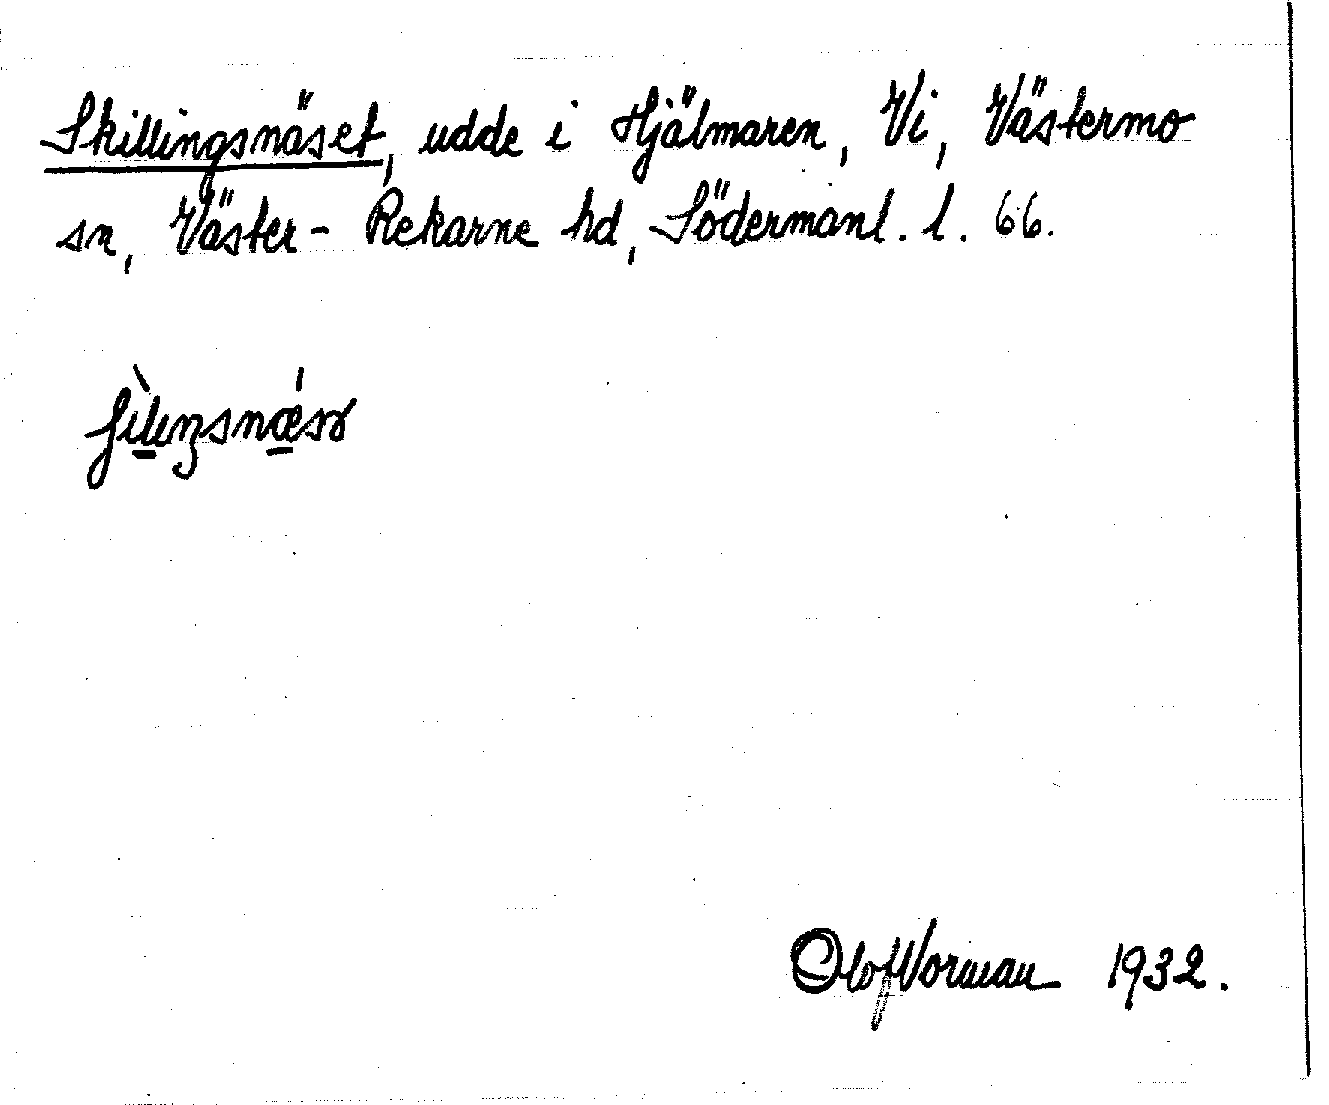 Skillingsnäset, udde i Hjälmaren, Vi, Västermo
sn, Väster-Rekarne hd, Södermanl. l. 66.
Olof Norman 1932.